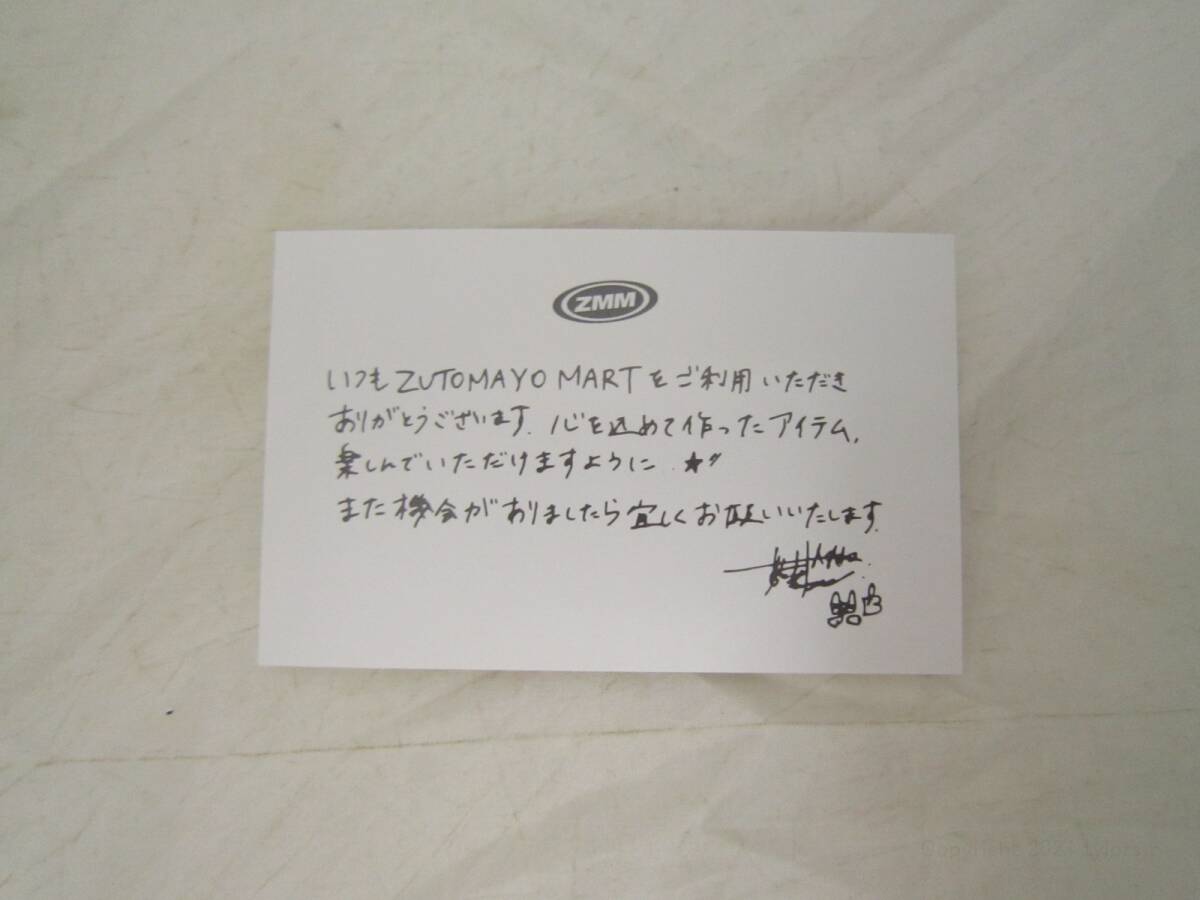 ZMM
いつもZUTOMAYO MARTをご利用いただき
ありがとうございます. 心を込めて作ったアイテム,
楽しんでいただけますように ★〃
また機会がありましたら宜しくお願いいたします.